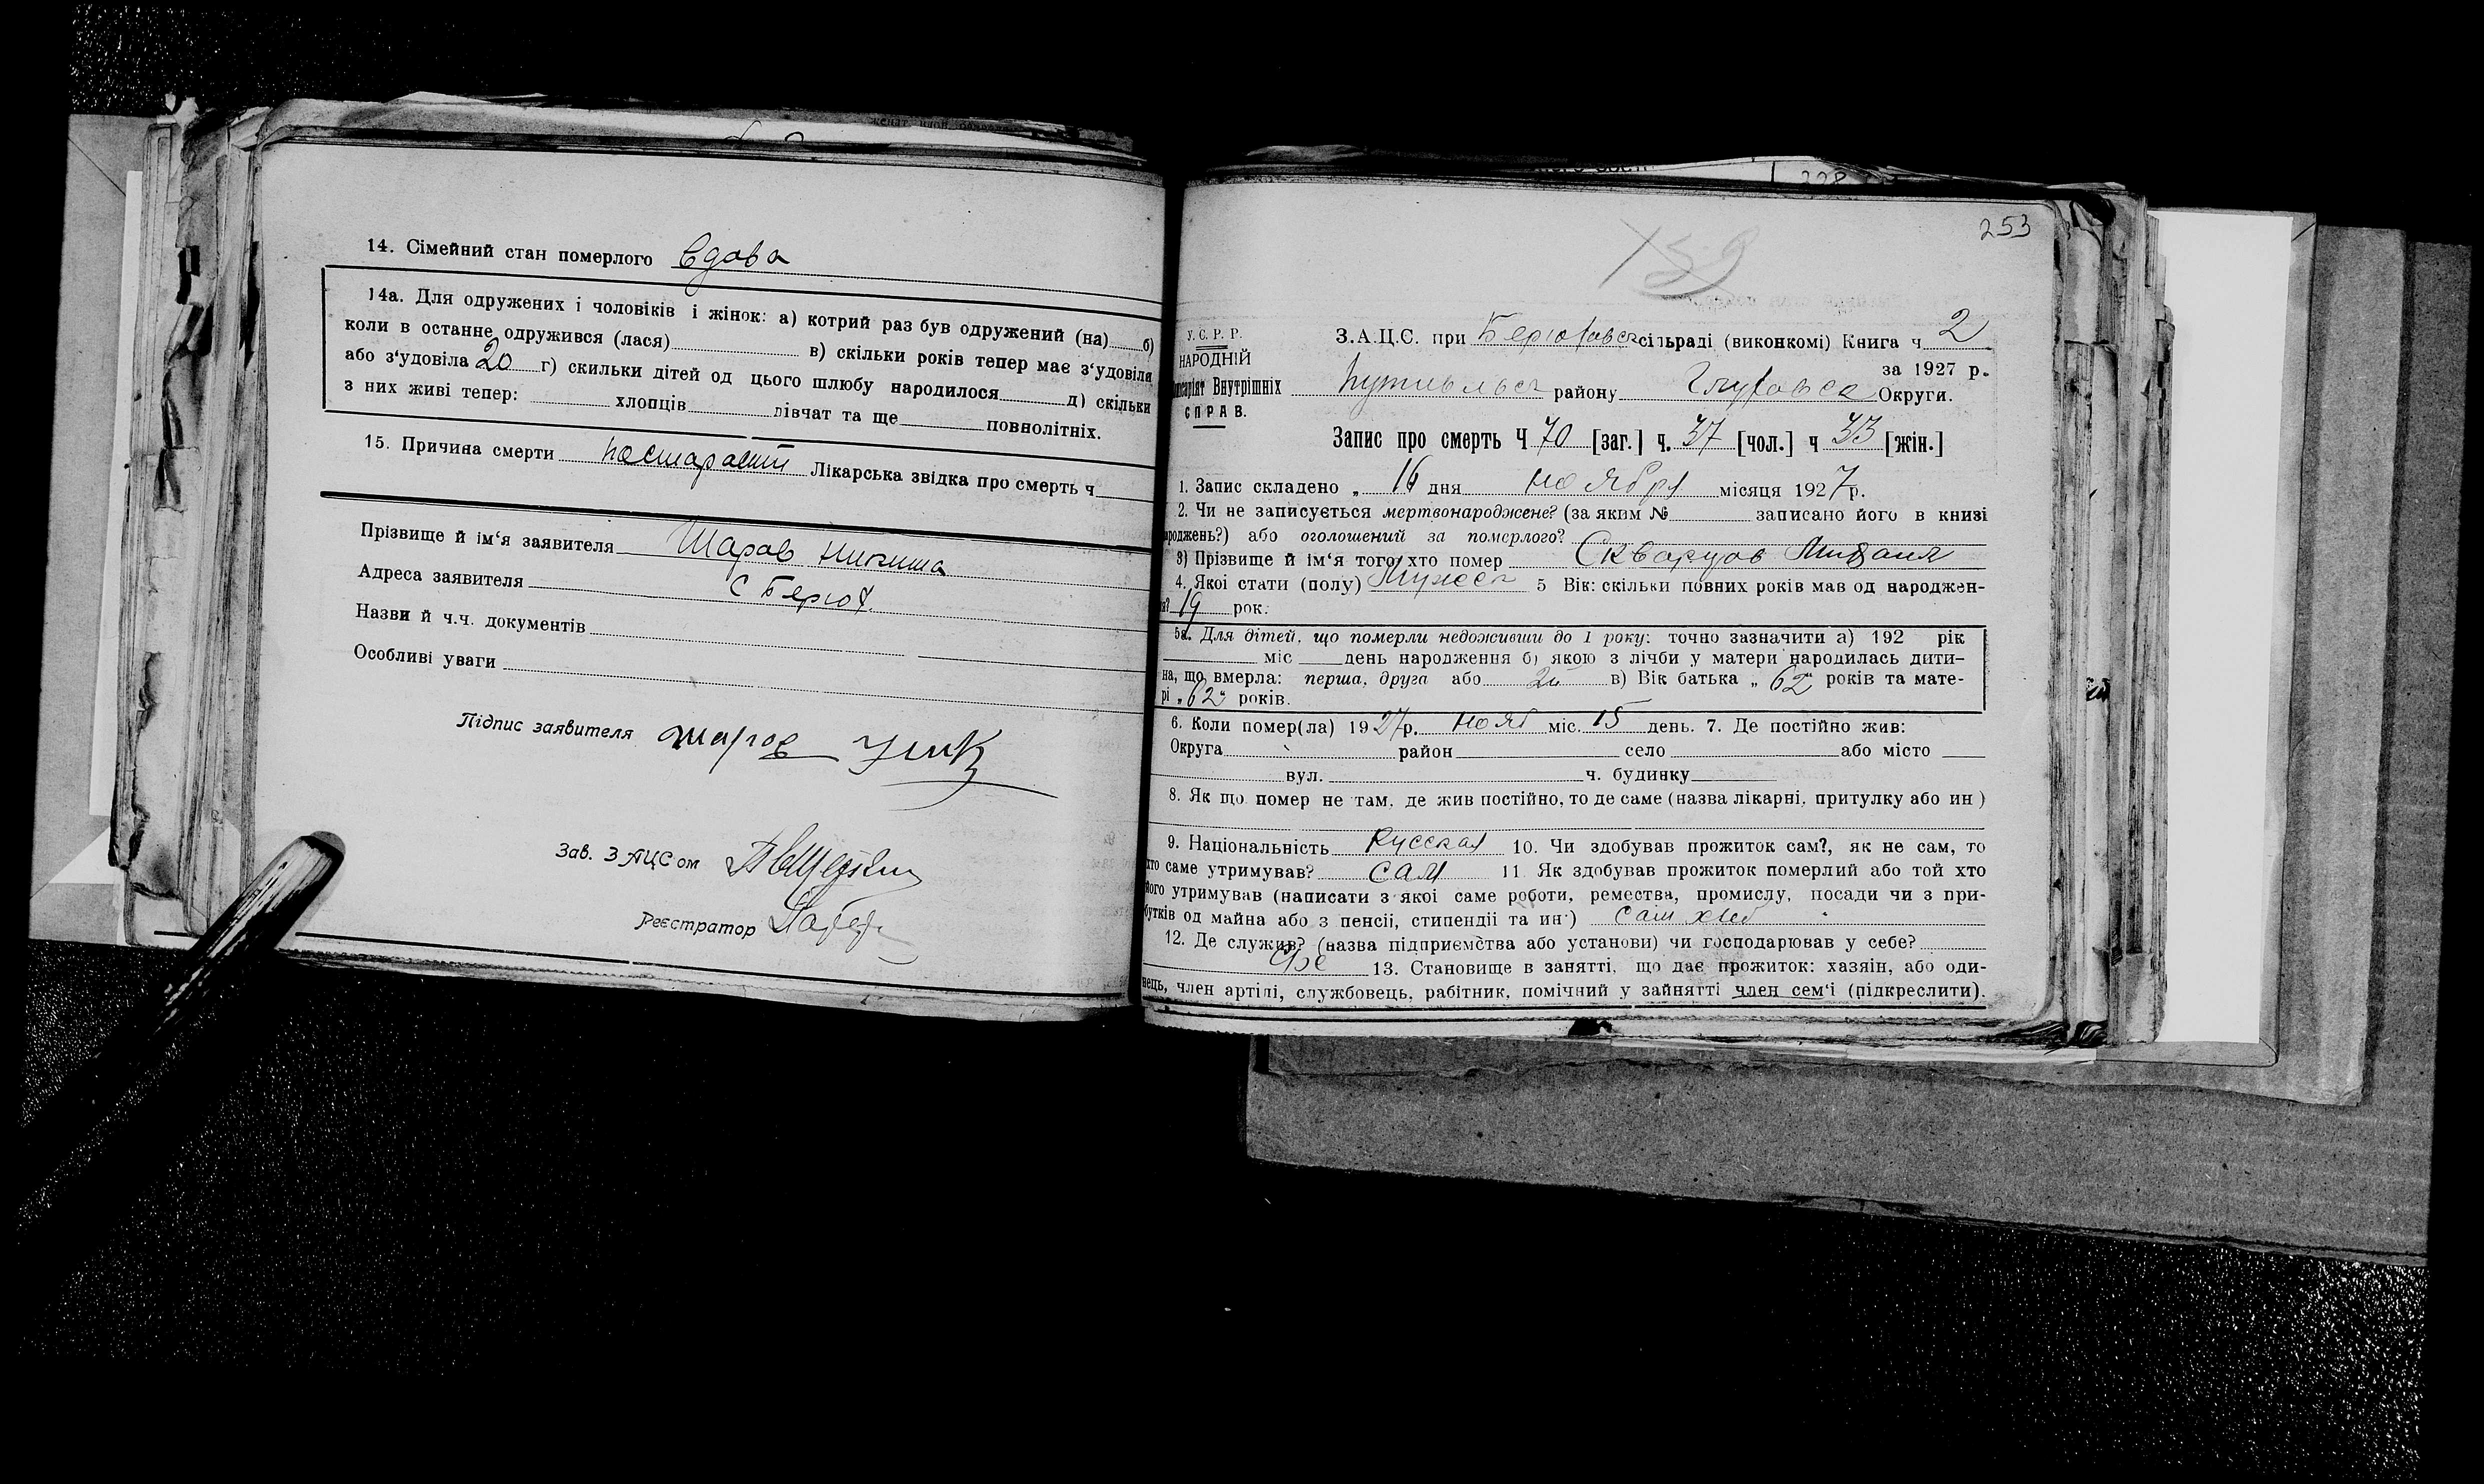 14. Сімейний стан померлого Вдова
14а. Для одружених і чоловіків і жінок: а) котрий раз був одружений (на) б)
коли в останне одружився (лася) в) скільки років тепер має з'удовіля
або з'удовіла 20 г) скильки дітей од цього шлюбу народилося д) скільки
з них живі тепер: хлопців дівчат та ще повнолітніх.
15. Причина смерти постарости Лікарська звідка про смерть ч
Прізвище й ім'я заявителя Шаров Никита
Адреса заявителя с Берюх.
Назви й ч.ч. документів
Особливі уваги
Підпис заявителя Шаров
Зав. ЗАЦСом
Реєстратор
253
У.С.Р.Р.
НАРОДНІЙ
Внутрішніх
СПРАВ.
З.А.Ц.С. при Берюховск сільраді (виконкомі) Книга ч 2
за 1927 р.
Путивльск району Глуховск Округи.
Запис про смерть Ч 70 [заг.] ч. 37 [чол.] ч 33 [жін.]
1. Запис складено „ 16 дня ноября місяця 1927 р.
2. Чи не записується мертвонароджене? (за яким № записано його в книзі
роджень?) або оголошений за померлого?
3) Прізвище й ім'я того, хто помер Скварцов Михаил
4. Якої стати (полу) Мужеск 5 Вік: скільки повних років мав од народжен-
19 рок.
5а. Для дітей, що померли недоживши до 1 року: точно зазначити а) 192 рік
міс день народження б) якою з лічби у матери народилась дити-
на, що вмерла: перша, друга або в) Вік батька „ 62 " років та мате-
рі „ 62 " років.
6. Коли помер(ла) 1927 р. нояб міс. 15 день. 7. Де постійно жив:
Округа район село або місто
вул. ч. будинку
8. Як що помер не там, де жив постійно, то де саме (назва лікарні, притулку або ин )
9. Національність Русская 10. Чи здобував прожиток сам?, як не сам, то
хто саме утримував? САМ 11 Як здобував прожиток померлий або той хто
його утримував (написати з якоі саме роботи, ремества, промислу, посади чи з при-
бутків од майна або з пенсіі, стипендіі та ин ) сам хлеб
12. Де служив? (назва підприємства або установи) чи господарював у себе?
13. Становище в занятті, що дає прожиток: хазяін, або оди-
нець, член артілі, службовець, рабітник, помічний у зайнятті член сем'і (підкреслити).